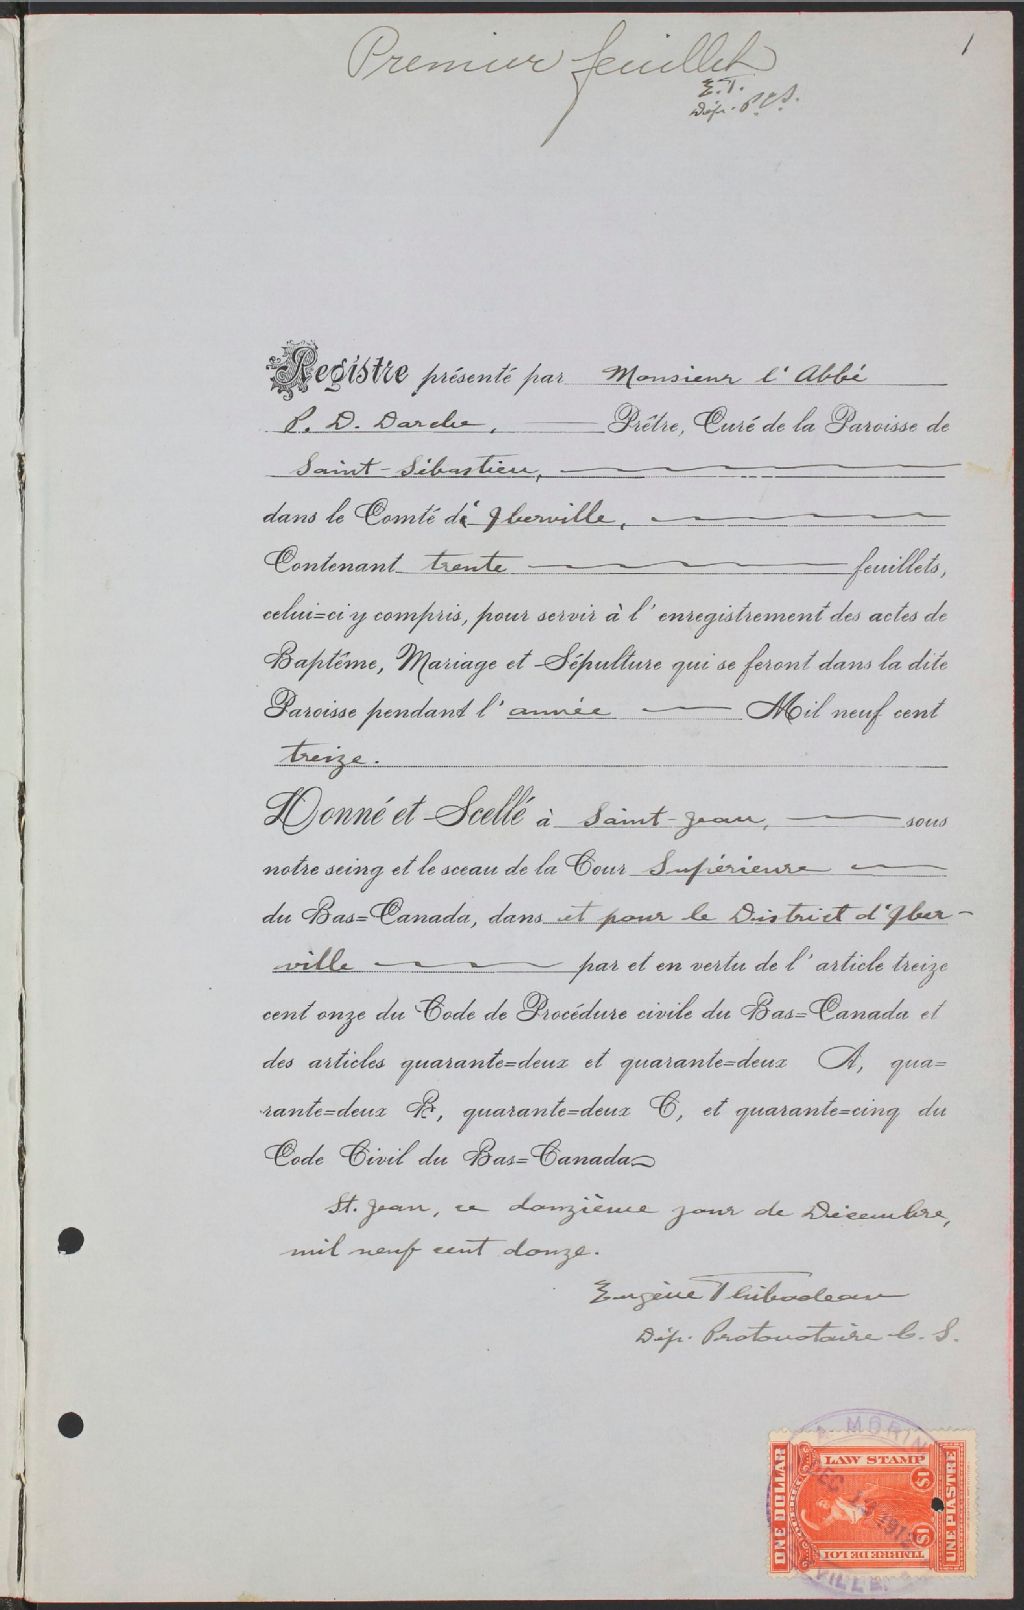 1
Premier feuillet
E.T.
Dép. P.C.S.
Registre présenté par Monsieur l'Abbé
P. D. Darche, Prêtre, Curé de la Paroisse de
Saint-Sébastien,
dans le Comté d'Iberville,
Contenant trente feuillets,
celui=ci y compris, pour servir à l'enregistrement des actes de
Baptême, Mariage et Sépulture qui se feront dans la dite
Paroisse pendant l'année Mil neuf cent
treize.
Donné et Scellé à Saint-Jean, sous
notre seing et le sceau de la Cour Supérieure
du Bas=Canada, dans et pour le District d'Iber-
ville par et en vertu de l'article treize
cent onze du Code de Procédure civile du Bas=Canada et
des articles quarante=deux et quarante=deux A, qua=
rante=deux B, quarante=deux C, et quarante=cinq du
Code Civil du Bas=Canada
St. Jean, ce douzième jour de Décembre,
mil neuf cent douze.
Eugène Thibodeau
Dép. Protonotaire C. S.
A. MORIN
DEC 13 1912
VILLE
LAW STAMP
ONE DOLLAR
UNE PIASTRE
$1
$1
TIMBRE DE LOI